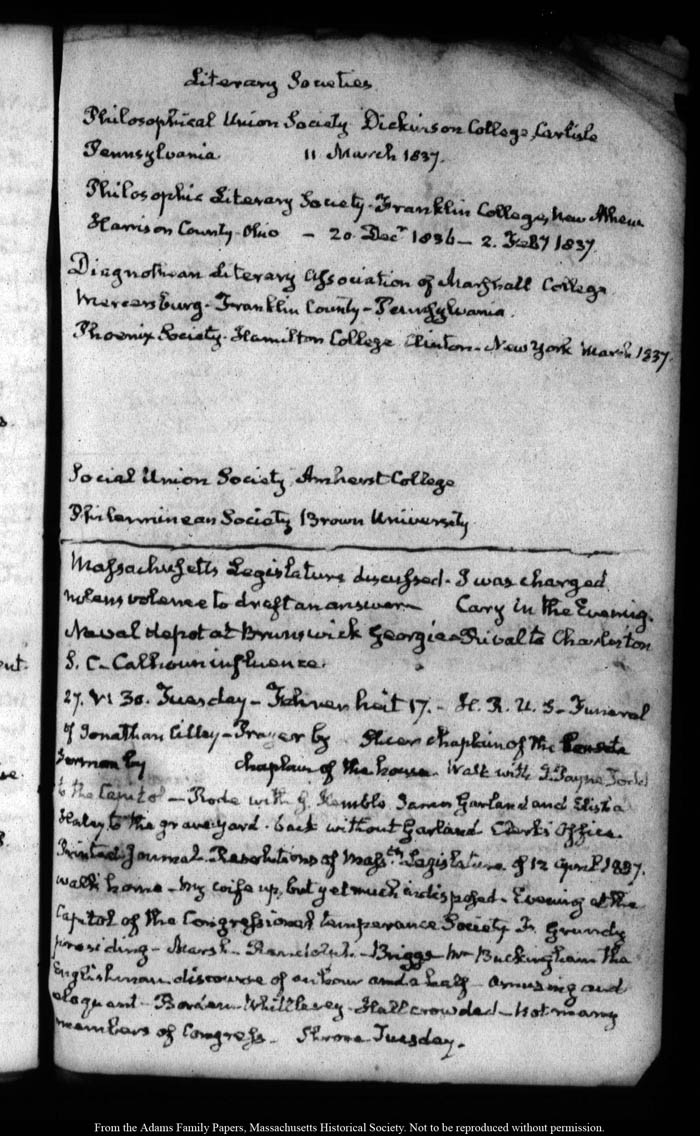 Literary Societies
Philosophical Union Society Dickinson College, Carlisle
Pennsylvania 11 March 1837.
Philosophic Literary Society - Franklin College, New Athens
Harrison County - Ohio - 20. Decr 1836 - 2. Feby 1837
Diagnothean Literary Association of Marshall College
Mercersburg - Franklin County - Pennsylvania.
Phoenix Society - Hamilton College Clinton - New York March 1837.
Social Union Society Amherst College
Philerminean Society Brown University
Massachusetts Legislature discussed - I was charged
nolens volence to draft an answer - Cary in the Evening.
Naval depot at Brunswick Georgia Rival to Charleston
S. C - Calhoun influence.
27. VI 30. Tuesday - Fahrenheit 17. - H. R. U. S - Funeral
of Jonathan Cilley - Prayer by Slicer chaplain of the Senate
Sermon by chaplain of the house. Walk with J. Payne Todd
to the Capitol - Rode with G. Kemble James Garland and Elisha
Haley to the grave yard. back without Garland Clerk's Office.
Printed Journal. Resolutions of Massts Legislature of 12 April 1837.
walk home - My wife up, but yet much indisposed - Evening at the
Capitol of the Congressional temperance Society F. Grundy
presiding - Marsh - Randolph - Briggs Mr Buckingham the
Englishman discourse of an hour and a half - amusing and
eloquent - Borden Whittlesey - Hall crowded - not many
members of Congress. Shrove Tuesday.
ent.
From the Adams Family Papers, Massachusetts Historical Society. Not to be reproduced without permission.